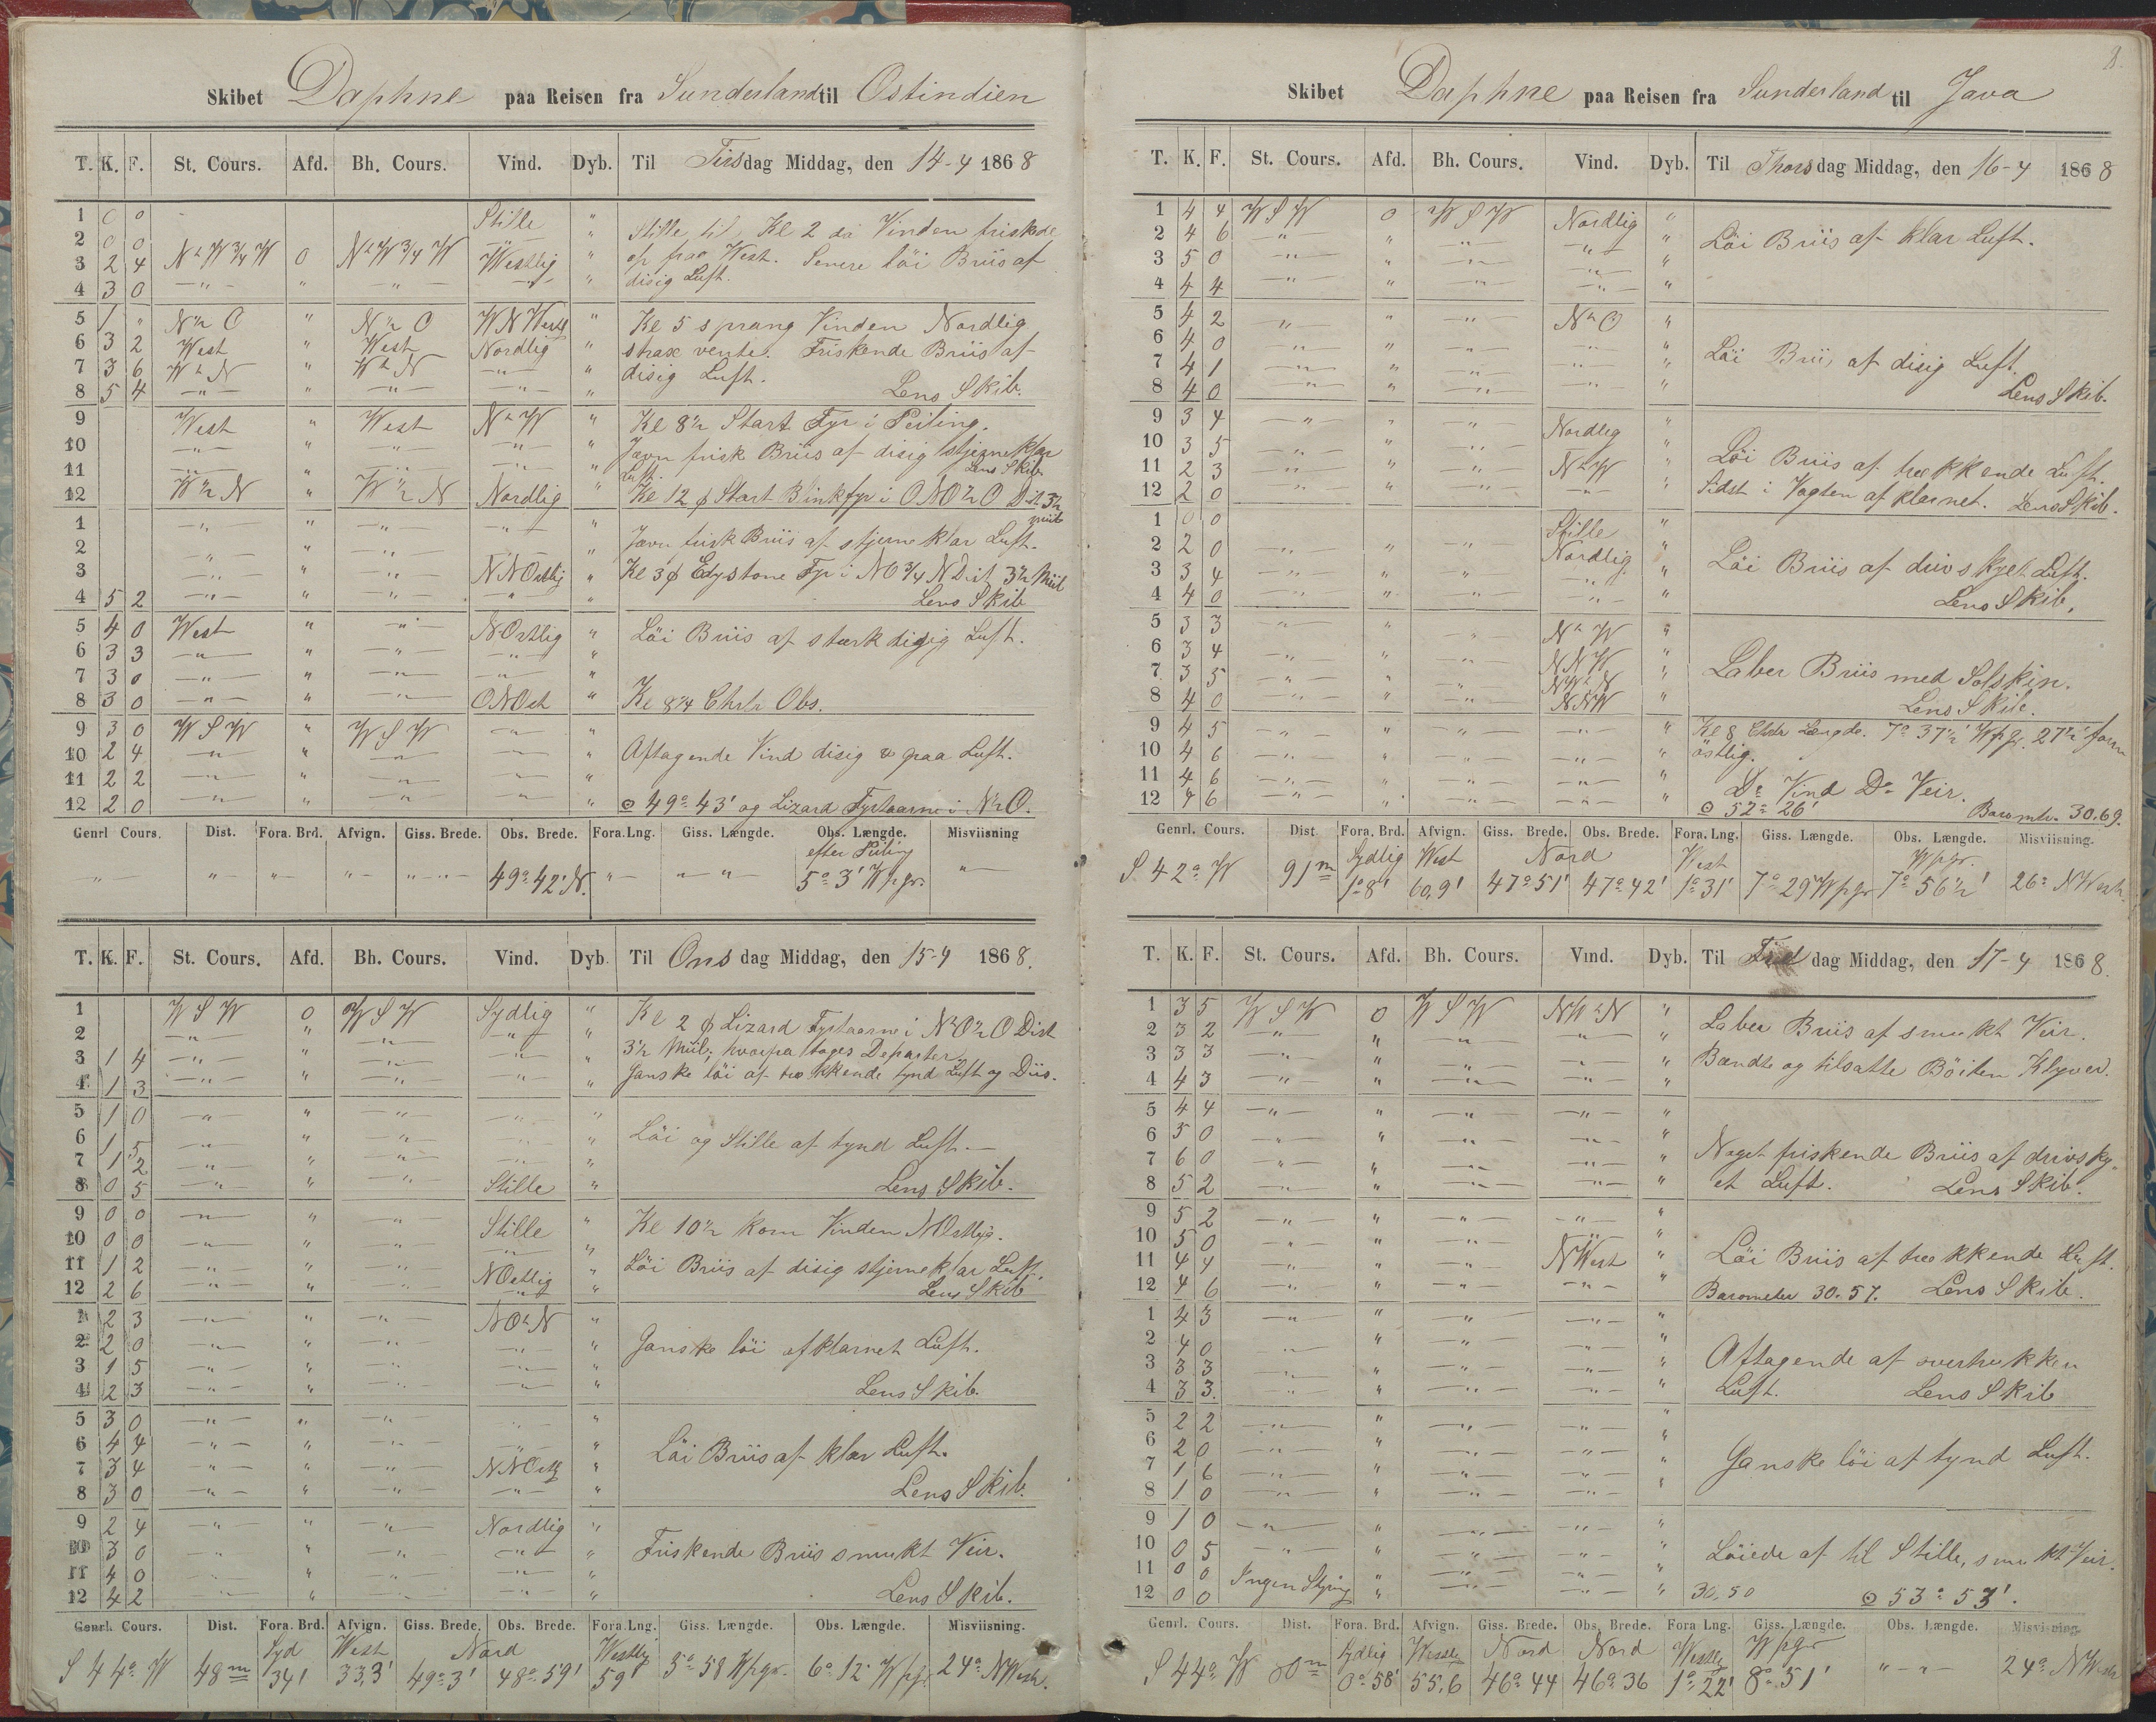 Skibet Daphne paa Reisen fra Sunderland til Ostindien
T. K. F. St. Cours. Afd. Bh. Cours. Vind. Dyb. Til Tirsdag Middag, den 14-4 1868
1 0 0 Stille " Stille til Kl 2 da Vinden friskede
2 0 0 N½W¾W 0 N½W¾W Westlig " op fraa West. Senere löi Briis af
3 2 4 — " — " — " — disig Luft.
4 3 0
5 1 " N½O " N½O WNWestl " Kl 5 sprang Vinden Nordlig
6 3 2 West " West Nordlig " strax vendte. Friskende Briis af
7 3 6 W½N " W½N — " — " disig Luft.
8 5 4 — " — " — " — — " — " Lens Skib.
9 West " West N½W " Kl 8½ Start Fyr i Peiling.
10 — " — " — " — — " — " Jævn frisk Briis af disig stjerneklar
11 — " — — " — — " — " Luft. Lens Skib
12 W½N " W½N Nordlig " Kl 12 φ Start Binkfyr i ONO½O Dist 3½
miil
1 — " — " — " — — " — "
2 — " — " — " — " Jævn frisk Briis af stjerneklar Luft.
3 — " — " — " — NNOstlig " Kl 3 φ Edystone Fyr i NO¾N Dist 3½ Miil
4 5 2 — " — " — " — — " — " Lens Skib
5 4 0 West " — " — NOstlig " Löi Briis af stærk disig Luft.
6 3 3 — " — " — " — — " — "
7 3 0 — " — " — " — — " — "
8 3 0 — " — " — " — ONOst " Kl 8¼ Chrtr Obs.
9 3 0 WSW " WSW — " — "
10 2 4 — " — " — " — — " — " Aftagende Vind disig paa Luft.
11 2 2 — " — " — " — — " — "
12 2 0 — " — " — " — — " — " ⊙ 49° 43' og Lizard Fyrtaarne i N½O.
Genrl Cours. Dist. Fora. Brd. Afvign. Giss. Brede. Obs. Brede. Fora.Lng. Giss. Længde. Obs. Længde. Misviisning
efter Peiling
— " — — " — — " — — " — — " — 49° 42' N. — " — — " — 5° 3' Wpgr. — " —
T. K. F. St. Cours. Afd. Bh. Cours. Vind. Dyb. Til Onsdag Middag, den 15-4 1868.
1 WSW 0 WSW Sydlig " Kl 2 φ Lizard Fyrtaarne i N½O½O Dist
2 — " — " — " — — " — " 3½ Miil; hvorpa toges Departer
3 1 4 — " — " — " — — " — " Ganske löi af trækkende tynd Luft og Diis.
4 1 3 — " — " — " — — " — "
5 1 0 — " — " — " — — " — "
6 1 5 — " — " — " — — " — " Löi og Stille af tynd Luft.
7 1 2 — " — " — " — — " — "
8 0 5 — " — " — " — Stille " Lens Skib.
9 0 0 — " — " — " — Stille " Kl 10½ kom Vinden NOstlig.
10 0 0 — " — " — " — — " — "
11 1 2 — " — " — " — NOstlig " Löi Briis af disig stjerneklar Luft.
12 2 6 — " — " — " — — " — " Lens Skib
1 2 3 — " — — " — NO½N "
2 2 0 — " — " — " — — " — " Ganske löi afklarnet Luft.
3 1 5 — " — " — " — — " — "
4 2 3 — " — " — " — — " — " Lens Skib.
5 3 0 — " — " — " — — " — "
6 4 4 — " — " — " — — " — " Löi Briis af klar Luft.
7 3 4 — " — " — " — NNOstl "
8 3 0 — " — " — " — — " — " Lens Skib.
9 2 4 — " — " — " — Nordlig "
10 3 0 — " — " — " — — " — " Friskende Briis smukt Veir.
11 4 0 — " — " — " — — " — "
12 4 2 — " — " — " — — " — " Lens Skib.
Genrl. Cours. Dist. Fora. Brd. Afvign. Giss. Brede. Obs. Brede. Fora.Lng. Giss. Længde. Obs. Længde. Misviisning.
Syd West Nord Westlig
S 44° W 48 m 34' 33,3' 49° 3' 48° 59' 59' 5° 58 Wpgr. 6° 12' Wpgr 24° NWestl.
8.
Skibet Daphne paa Reisen fra Sunderland til Java
T. K. F. St. Cours. Afd. Bh. Cours. Vind. Dyb. Til Thorsdag Middag, den 16-4 1868
1 4 4 WSW 0 WSW Nordlig "
2 4 6 — " — " — " — — " — " Löi Briis af klar Luft.
3 5 0 — " — " — " — — " — "
4 4 4 — " — " — " — — " — "
5 4 2 — " — " — " — N½O "
6 4 0 — " — " — " — — " — "
7 4 1 — " — " — " — — " — " Löi Briis af disig Luft.
8 4 0 — " — " — " — — " — " Lens Skib.
9 3 4 — " — " — " — Nordlig "
10 3 5 — " — " — " — — " — " Löi Briis af trækkende Luft.
11 2 3 — " — " — " — N½W "
12 2 0 — " — " — " — — " — " Sidst i Vagten afklarnet. Lens Skib.
1 0 0 Stille "
2 2 0 — " — " — " — Nordlig " Löi Briis af drivskyet Luft.
3 3 4 — " — " — " — — " — "
4 4 0 — " — " — " — — " — " Lens Skib.
5 3 3 — " — " — " — N½W "
6 3 4 — " — " — " — NNW "
7 3 5 — " — " — " — NW½N " Laber Briis med Solskin.
8 4 0 — " — " — " — NNW " Lens Skib.
9 4 5 — " — " — " — — " — " Kl 8 Chrtr Længde. 7° 37½' Wpgr. 27½' form
10 4 6 — " — " — " — — " — " östlig.
11 4 6 — " — " — " — — " — " Do Vind Do Veir.
12 4 6 — " — " — " — — " — " ⊙ 52° 26' Baromtr. 30.69.
Genrl. Cours. Dist. Fora. Brd. Afvign. Giss. Brede. Obs. Brede. Fora. Lng. Giss. Længde. Obs. Længde. Misviisning.
Sydlig West Nord West Wpgr.
S 42° W 91 m 1° 8' 60,9' 47° 51' 47° 42' 1° 31' 7° 29' Wpgr 7° 56½' 26° NWestl.
T. K. F. St. Cours. Afd. Bh. Cours. Vind. Dyb. Til Fredag Middag, den 17-4 1868.
1 3 5 WSW 0 WSW NW½N " Laber Briis af smukt Veir.
2 3 2 — " — " — " — — " — "
3 3 3 — " — " — " — — " — " Bændte og tilsatte Böiten Klyver.
4 4 3 — " — " — " — — " — "
5 4 4 — " — " — " — — " — "
6 5 0 — " — " — " — — " — "
7 6 0 — " — " — " — — " — " Noget friskende Briis af drivsky-
8 5 2 — " — " — " — — " — " et Luft. Lens Skib.
9 5 2 — " — " — " — — " — "
10 5 0 — " — " — " — "
11 4 4 — " — " — " — NWest " Löi Briis af trækkende Luft.
12 4 6 — " — " — " — — " — " Barometer 30.57. Lens Skib.
1 4 3 — " — " — " — — " — "
2 4 0 — " — " — " — — " — "
3 3 3 — " — " — " — — " — " Aftagende af overtrukken
4 3 3 — " — " — " — — " — " Luft. Lens Skib
5 2 2 — " — " — " — — " — "
6 2 0 — " — " — " — — " — "
7 1 6 — " — " — " — — " — " Ganske löi af tynd Luft.
8 1 0 — " — " — " — — " — "
9 1 0 — " — " — " — — " — "
10 0 5 — " — " — " — — " — " Löiede af til Stille, smukt Veir.
11 0 0 Ingen Styring " — " — — " — "
12 0 0 " — " — — " — " 30,50 ⊙ 53° 53'.
Genrl. Cours. Dist. Fora. Brd. Afvign. Giss. Brede. Obs. Brede. Fora Lng. Giss. Længde. Obs. Længde. Misvisning.
Sydlig Westlig Nord Nord Westlig Wpgr
S 44° W 80 m 0° 58' 55,6 46° 44 46° 36 1° 22' 8° 51' " — " — 24° NWestl